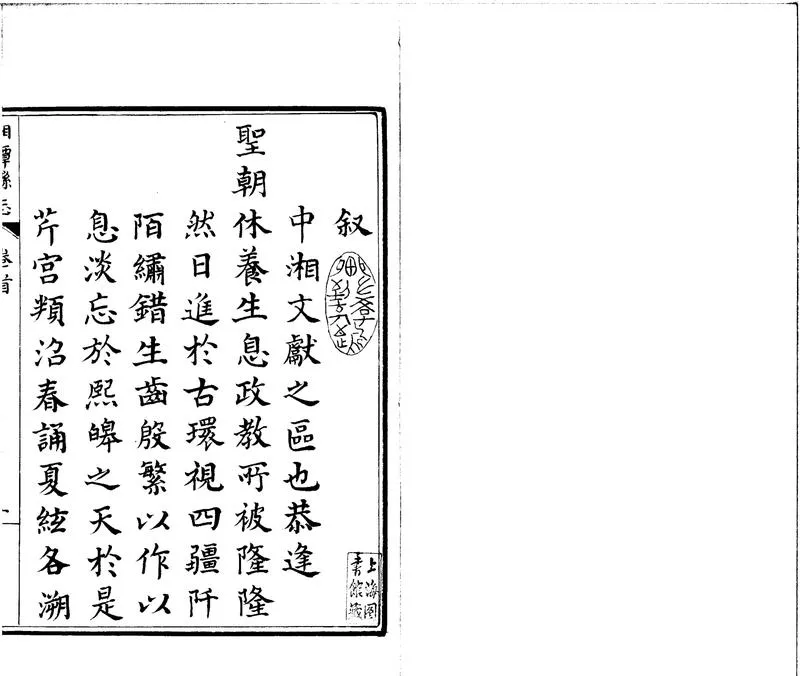 叙
中湘文獻之區也恭逢
聖朝休養生息政教所被隆隆
然日進於古環視四疆阡
陌繡錯生齒殷繁以作以
息淡忘於熙皞之天於是
芹宫頖沼春誦夏絃各溯
湘潭縣志 卷首
上海圖
書館藏